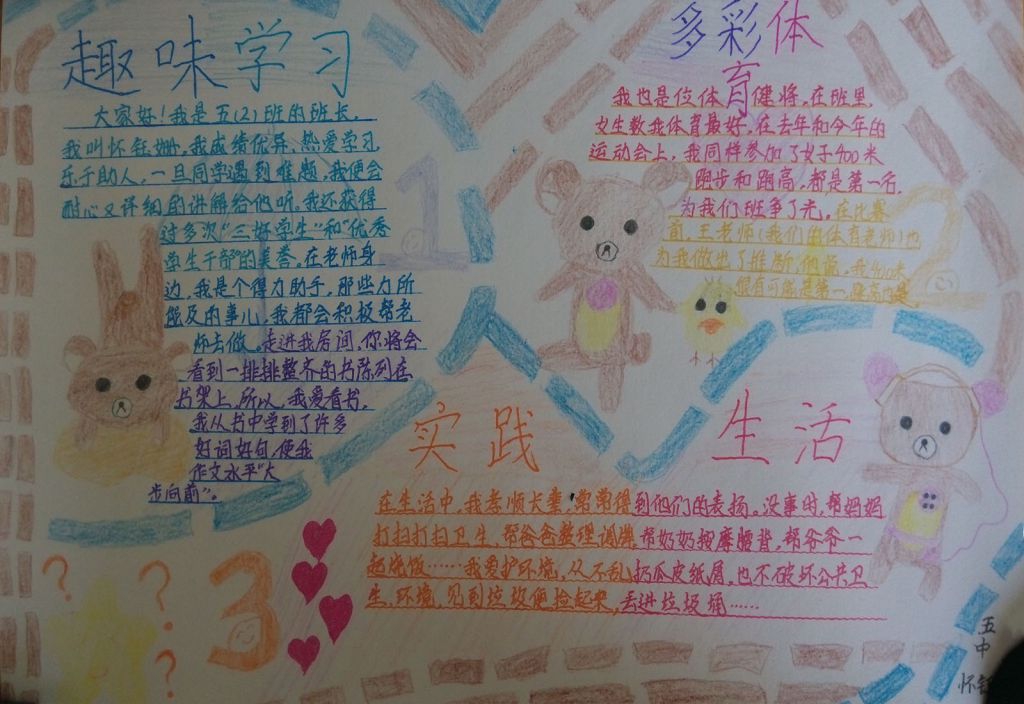 趣味学习
大家好！我是五(2)班的班长，
我叫怀钰姗，我成绩优异、热爱学习、
乐于助人，一旦同学遇到难题，我便会
耐心又详细的讲解给他听，我还获得
过多次“三好学生”和“优秀
学生干部”的美誉。在老师身
边，我是个得力助手，那些力所
能及的事儿，我都会积极帮老
师去做。走进我房间，你将会
看到一排排整齐的书陈列在
书架上，所以，我爱看书，
我从书中学到了许多
好词好句，使我
作文水平“大
步向前”。
1
多彩体
育
我也是位体健将，在班里，
女生数我体育最好，在去年和今年的
运动会上，我同样参加了女子400米
跑步和跳高，都是第一名，
为我们班争了光。在比赛
前，王老师(我们的体育老师)也
为我做出了推断，他说，我400米
很有可能是第一，跳高也是。
2
实践 生活
在生活中，我孝顺长辈，常常得到他们的表扬。没事时，帮妈妈
打扫打扫卫生，帮爸爸整理调漆，帮奶奶按摩腰背，帮爷爷一
起烧饭……我爱护环境，从不乱扔瓜皮纸屑，也不破坏公共卫
生、环境，见到垃圾便捡起来，丢进垃圾桶……
3
? ? ? ?
五
中
怀钰